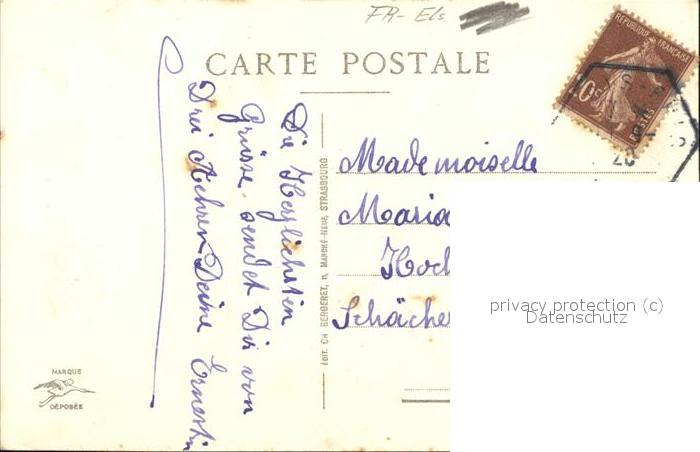 FR- Els
CARTE POSTALE
REPUBLIQUE FRANÇAISE
POSTES
Die Herzlichsten
Grüsse sendet Dir von
Drei Aehren Deine Ernestin
ÉDIT. CH. BERGERET, 11, MARCHÉ-NEUF, STRASBOURG
Mademoiselle
Maria
Hoch
Schächer
MARQUE
DÉPOSÉE
privacy protection (c)
Datenschutz